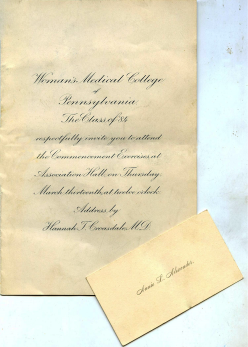 Woman's Medical College
of
Pennsylvania
The Class of '84
respectfully invite you to attend
the Commencement Exercises, at
Association Hall, on Thursday
March thirteenth, at twelve o'clock
Address, by
Hannah T. Croasdale, M.D.
Annie L. Alexander